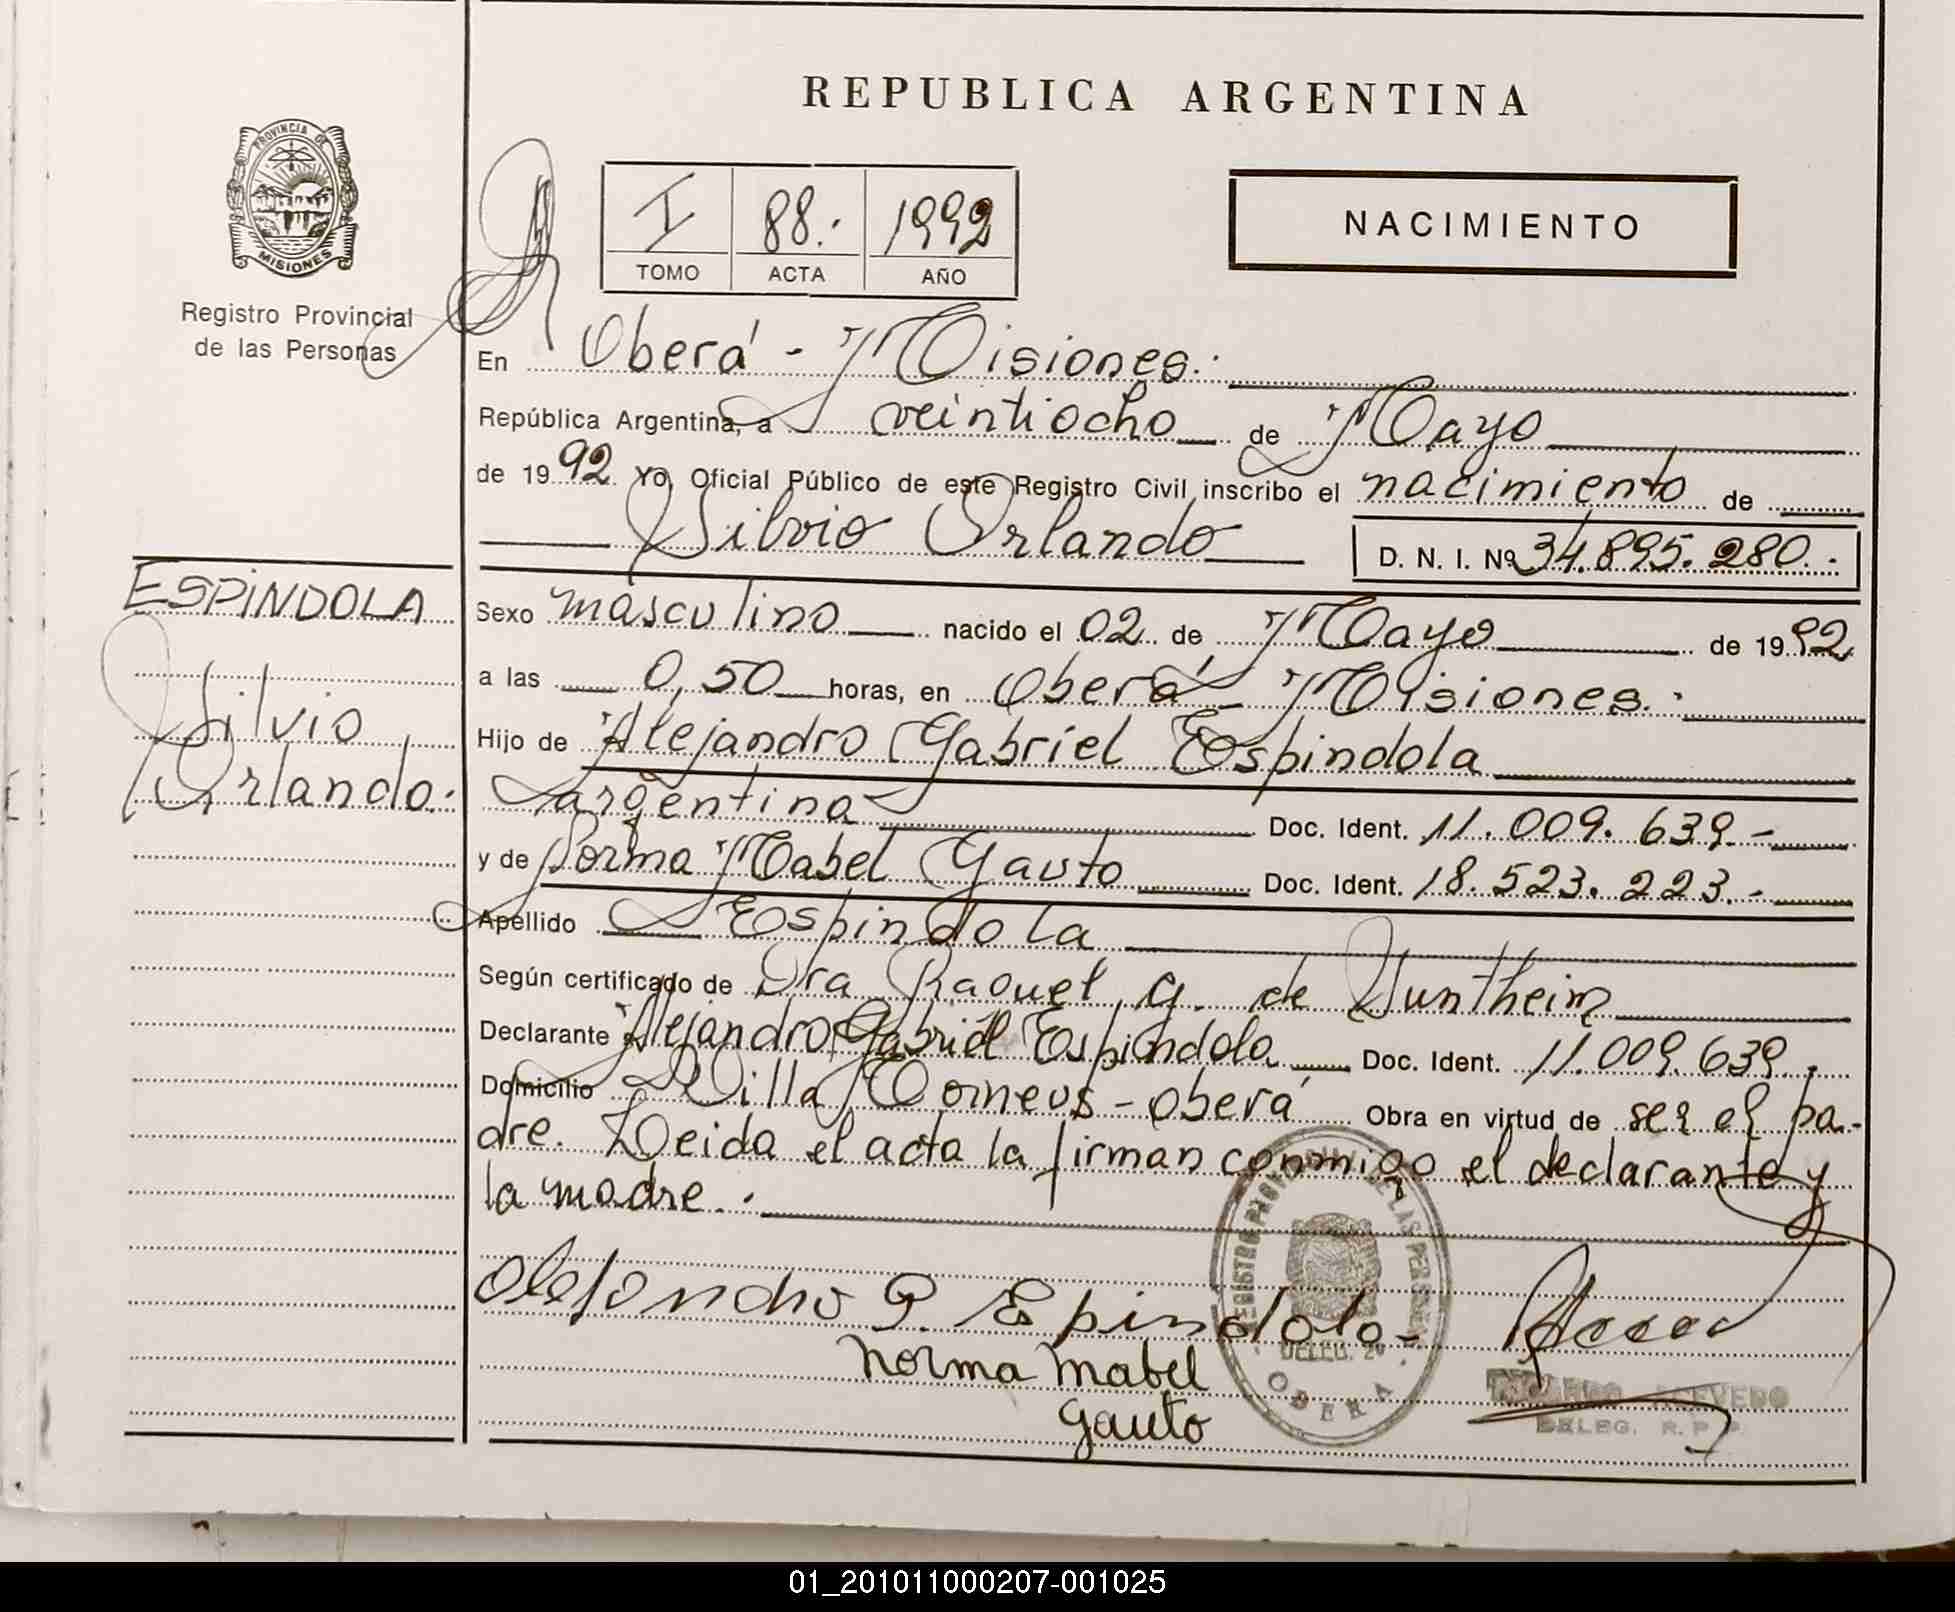 REPUBLICA ARGENTINA
PROVINCIA DE
MISIONES
Registro Provincial
de las Personas
I 88. 1992
TOMO ACTA AÑO
NACIMIENTO
En Oberá - Misiones.
República Argentina, a veintiocho de Mayo
de 1992 Yo, Oficial Público de este Registro Civil inscribo el nacimiento de
Silvio Orlando D. N. I. Nº 34.895.280.
ESPINDOLA
Silvio
Orlando.
Sexo masculino nacido el 02 de Mayo de 1992
a las 0,50 horas, en Oberá - Misiones.
Hijo de Alejandro Gabriel Espindola
argentina Doc. Ident. 11.009.639.-
y de Norma Mabel Gauto Doc. Ident. 18.523.223.-
Apellido Espindola
Según certificado de Dra Raquel G. de Suntheim
Declarante Alejandro Gabriel Espindola Doc. Ident. 11.009.639.
Domicilio Villa - Oberá Obra en virtud de ser el pa-
dre. Leida el acta la firman conmigo el declarante y
la madre.
Alejandro G. Espindola
Norma Mabel
Gauto
REGISTRO DE LAS PERSONAS
DELEG.
OBERA
ACEVEDO
DELEG. R. P. P.
01_201011000207-001025